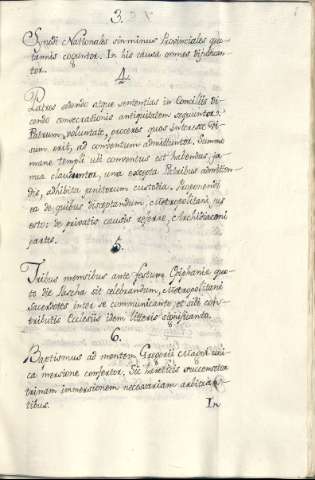 3.
Synodi Nationales sin minus Provinciales quo
tannis coguntor. In his causæ omnes disputan
tor.
4.
Patres adendo atque sententias in Conciliis di
cendo consecrationis antiquitatem sequuntor.
Patrum, voluntate, proceres quos interesse vi
sum erit, ad conventum admittuntor. Summo
mane templi ubi conventus est habendus, ja
nua clauduntor, una excepta Patribus admitten
dis, adhibita ostitorum custodia. Proponendi
ea de quibus disceptandum, Metropolitani jus
esto; de privatis causis referre, Archidiaconi
partes.
5.
Tribus mensibus ante festum Epiphaniæ quo
to die Pascha sit celebrandum, Metropolitani
Sacerdotes inter se communicanto, et sibi con
tributis Ecclesiis idem litteris significando.
6.
Baptismus ad mentem Gregorii Magni uni
ca mersione confertor. Sic hæreticis succensetor
trinam immersionem necessariam arbitran
tibus.
In